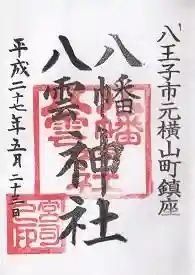 八王子市元横山町鎮座
八幡神社
八雲神社
平成二十七年五月二十三日
宮司之印